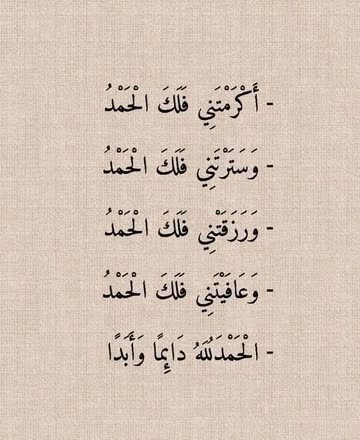 - أَكْرَمْتَنِي فَلَكَ الْحَمْدُ
- وَسَتَرْتَنِي فَلَكَ الْحَمْدُ
- وَرَزَقْتَنِي فَلَكَ الْحَمْدُ
- وَعَافَيْتَنِي فَلَكَ الْحَمْدُ
- الْحَمْدَلُلهُ دَائِمًا وَأَبَدًا